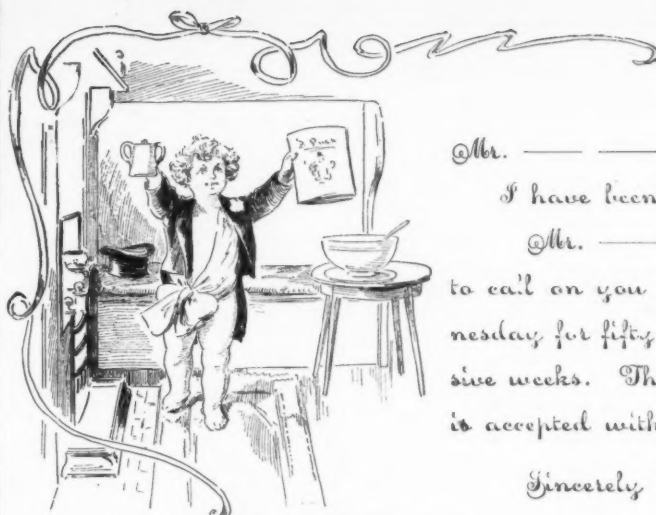 Mr.
I have been
Mr.
to call on you
nesday for fifty
sive weeks. Th
is accepted with
Sincerely